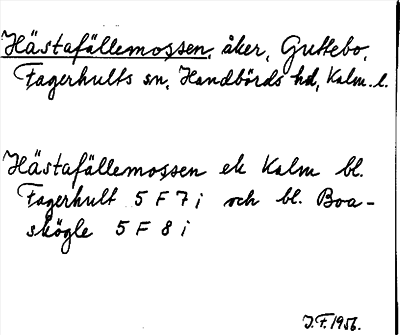 Hästafällemossen, åker, Guttebo,
Fagerhults sn, Handbörds hd, Kalm. l.
Hästafällemossen ek Kalm bl.
Fagerhult 5 F 7 i och bl. Boa-
skögle 5 F 8 i
J.F. 1956.